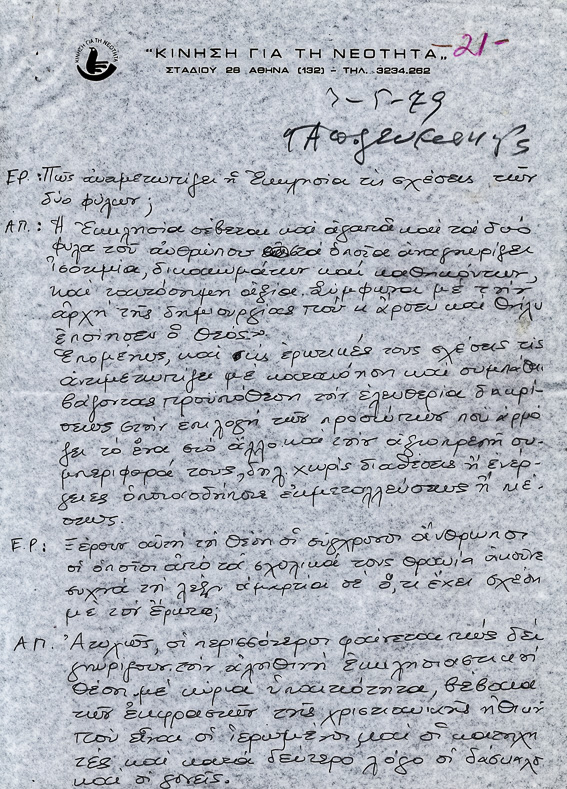 ΚΙΝΗΣΗ ΓΙΑ ΤΗ ΝΕΟΤΗΤΑ
"ΚΙΝΗΣΗ ΓΙΑ ΤΗ ΝΕΟΤΗΤΑ„ -21-
ΣΤΑΔΙΟΥ 28 ΑΘΗΝΑ (132) – ΤΗΛ. 3234.262
3-5-79
ΕΡ.: Πῶς ἀναμετωπίζει ἡ Ἐκκλησία τις σχέσεις τῶν
δύο φύλων;
ΑΠ.: Ἡ Ἐκκλησία σέβεται καὶ ἀγαπᾶ καὶ τα δυό
φύλα τοῦ ἀνθρώπου τα ὁποῖα ἀναγνωρίζει
ἰσοτιμία, δικαιωμάτων καὶ καθηκόντων,
καὶ ταυτόσημη ἀξία. Σύμφωνα με τὴν
ἀρχη τῆς δημιουργίας που κ ἄρσεν καὶ θῆλυ
ἐποίησεν ὁ Θεός».
Ἑπομένως, και τις ἐρωτικές τους σχέσεις τις
ἀντιμετωπίζει μέ κατανόηση καὶ συμπάθεια
βάζοντας προϋπόθεση τὴν ἐλευθερία διακρί-
σεως στὴν ἐπιλογή τῶν προσώπων που ἁρμό
ζει τὸ ἕνα στὸ ἄλλο και τὴν ἀξιοπρεπῆ συ-
μπεριφορα τους, δηλ. χωρὶς διαθέσεις ἢ ἐνέρ-
γειες ὁποιασδήποτε ἐκμεταλλεύσεως ἢ πιέ-
σεως.
Ε.Ρ.: Ξέρουν αὐτὴ τὴ θέση οἱ σύγχρονοι ἄνθρωποι
οἱ ὁποῖοι ἀπὸ τὰ σχολικά τους θρανία ἀκοῦνε
συχνα τὴ λέξη ἁμαρτία σὲ ὅ,τι ἔχει σχέση
με τὸν Ἔρωτα;
ΑΠ. Ἀτυχῶς, οἱ περισσότεροι φαίνεται πώς δέν
γνωρίζουν την ἀληθινή Ἐκκλησιαστική
θέση με κύρια ὑπαιτιότητα, βέβαια
τῶν ἐκφραστῶν τῆς χριστιανικῆς ἠθικῆ
που εἶναι οἱ ἱερωμένοι και οἱ κατηχη
τές και κατα δεύτερο λόγο οἱ δάσκαλοι
και οἱ γονεῖς.